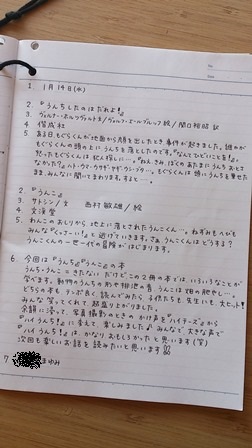 1. 1月14日(水)
2. 『うんちしたのはだれよ!』
3. ヴェルナー・ホルツヴァルト文/ヴォルフ・エールブルッフ絵/関口裕昭 訳
4. 偕成社
5. ある日もぐらくんが地面から顔を出したとき事件が起きました。誰かが
もぐらくんの頭の上にうんちを落としたのです。『なんてひどいことを!』
怒ったもぐらくんは犯人探しに…。『ねえ、きみ、ぼくのあたまにうんち おとさ
なかった?』ハト・ウマ・ウサギ・ヤギ・ウシ・ブタ…。もぐらくんは頭にうんちを乗せた
まま、みんなに聞いてまわります。すると…。
2. 『うんこ!』
3. サトシン/文 西村敏雄/絵
4. 文溪堂
5. わんこのおしりから、地上に落とされたうんこくん…。ねずみもへびも
みんな『くっさーい!』と逃げていきます。さぁ、うんこくんはどうする?
うんこくんの一世一代の冒険がはじまります。
6. 今回は『うんち』『うんこ』の本
うんち・うんこ=きたない だけど この2冊の本では、いろいろなことが
学べます。動物のうんちの形や排泄の音、うんこは畑の肥やし…。
どちらの本も、テンポ良く 読んでみたら 子供たちも 先生にも 大ヒット!
みんな 笑ってくれて、超盛り上がりました。
余韻に浸って、写真撮影のときのかけ声を『ハイチーズ』から
『ハイ うんち!』に変えて 楽しみました♪ みんなで、大きな声で
『ハイ うんち!』は、かなり おもしろかったと思います(笑)
次回も楽しいお話を読みたいと思います!!
7 まゆみ